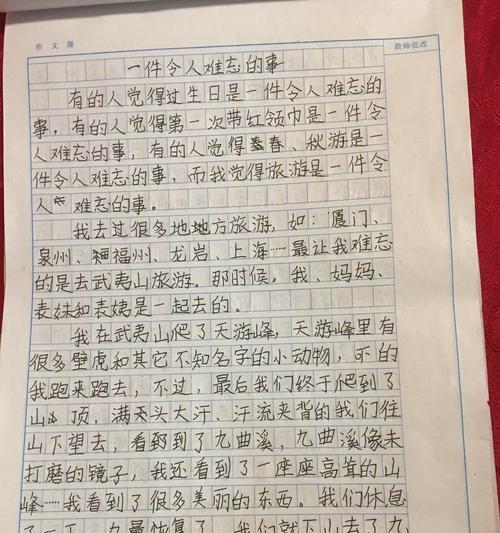 作文簿 教师批改
一件令人难忘的事
有的人觉得过生日是一件令人难忘的
事，有的人觉得第一次带红领巾是一件令
人难忘的事，有的人觉得春、秋游是一
件令人难忘的事，而我觉得旅游是一件令
人难忘的事。
我去过很多地地方旅游，如：厦门、
泉州、福州、龙岩、上海……最让我难忘
的是去武夷山旅游。那时候，我、妈妈、
表妹和表姨是一起去的。
我在武夷山爬了天游峰，天游峰里有
很多壁虎和其它不知名字的小动物，吓的
我跑来跑去，不过，最后我们终于爬到了
山顶，满头大汗、汗流夹背的我们往
山下望去，看到了九曲溪，九曲溪像未
打磨的镜子，我还看到了一座座高耸的山
峰……我看到了很多美丽的东西。我们休息
了一下，恢复了，我们就下山去了九